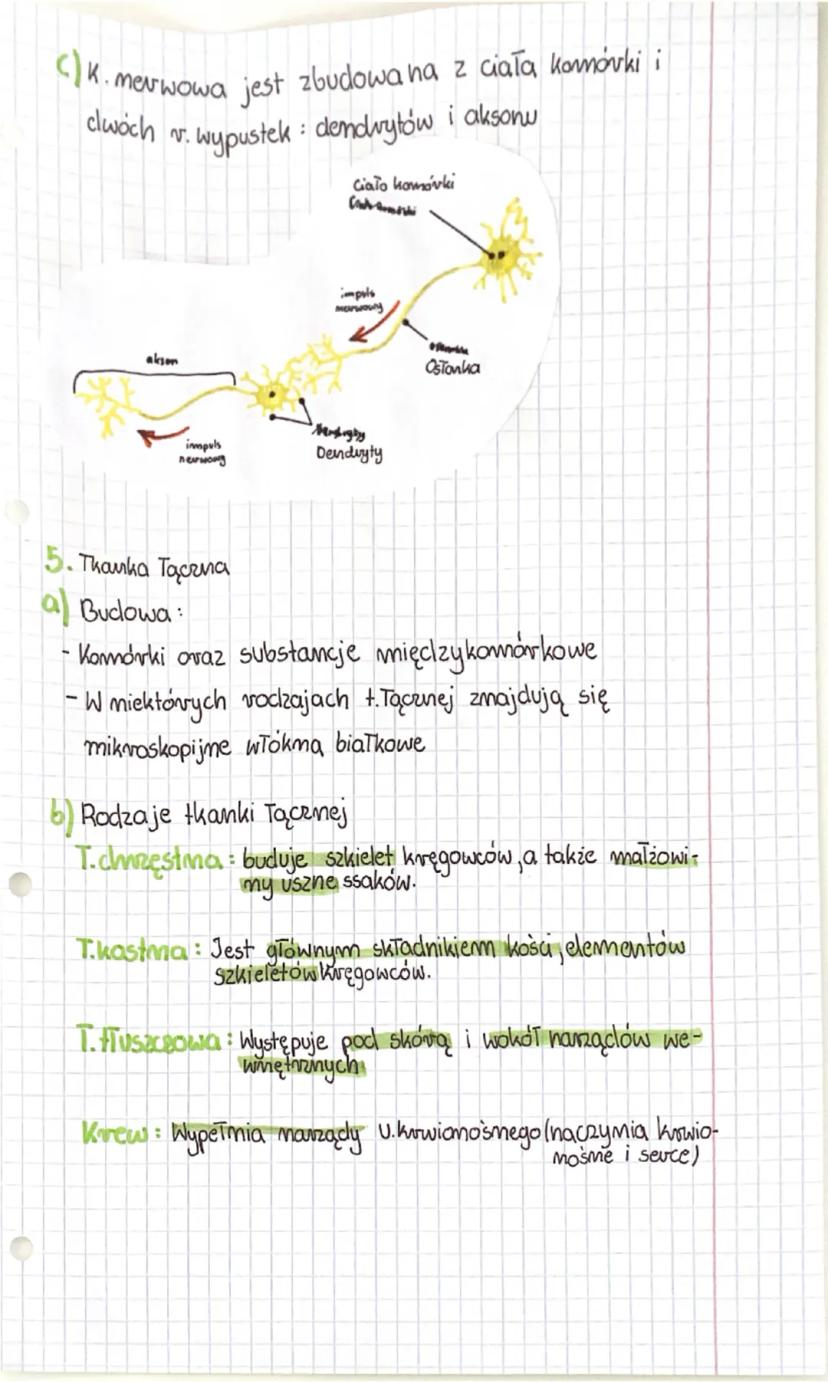 c) K. nerwowa jest zbudowana z ciała komórki i
dwóch r. wypustek : dendrytów i aksonu
Ciało komórki
impuls
nerwowy
Osłonka
akson
impuls
nerwowy
Dendryty
5. Tkanka Łączna
a) Budowa :
- Komórki oraz substancje międzykomórkowe
- W niektórych rodzajach t. Łącznej znajdują się
mikroskopijne włókna białkowe
b) Rodzaje tkanki Łącznej
T. chrzęstna : buduje szkielet kręgowców, a także małżowi-
ny uszne ssaków.
T. kostna : Jest głównym składnikiem kości, elementów
szkieletów kręgowców.
T. tłuszczowa : Występuje pod skórą i wokół narządów we-
wnętrznych
Krew : Wypełnia narządy u. krwionośnego (naczynia krwio-
nośne i serce)